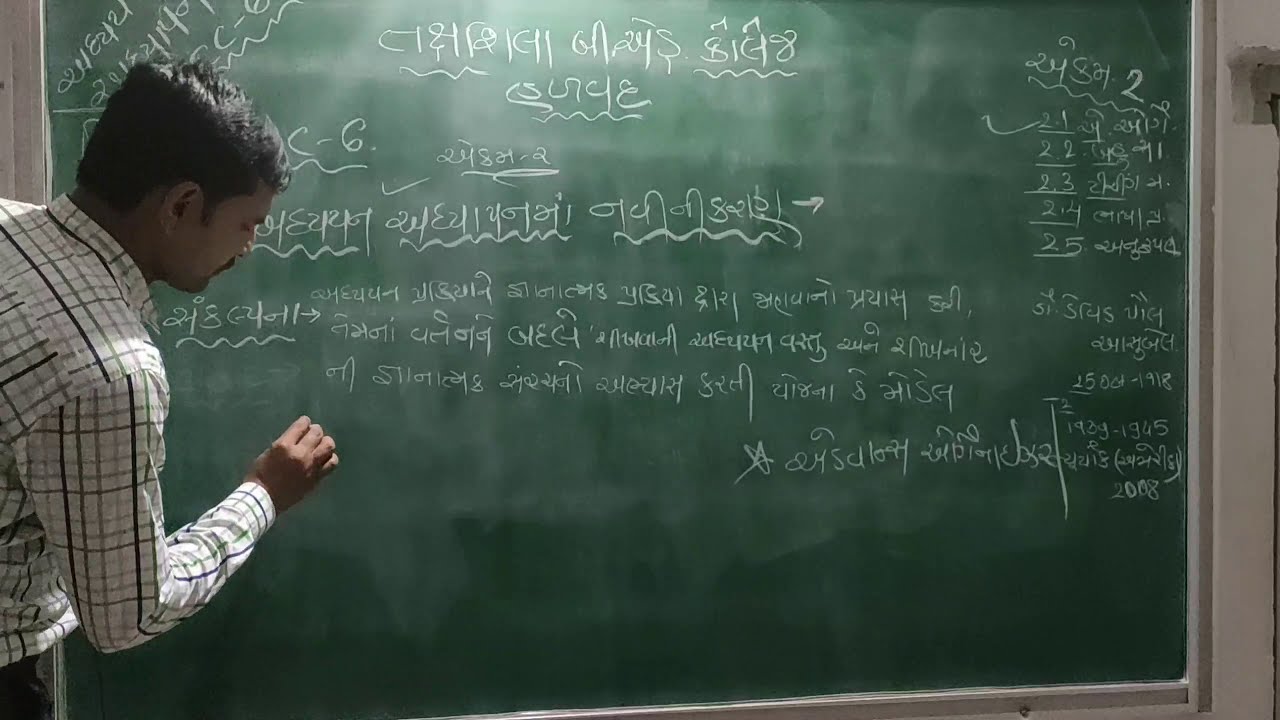 અધ્યય
અધ્યાપન
C-6
તક્ષશિલા બીએડ્. કૉલેજ
હળવદ
C-6.
એકમ-૨
અધ્યયન અધ્યાપનમાં નવીનીકરણ →
સંકલ્પના → અધ્યયન પ્રક્રિયાને જ્ઞાનાત્મક પ્રક્રિયા દ્વારા જાણવાનો પ્રયાસ કરી,
તેમનાં વર્તનને બદલે શીખવાની અધ્યયન વસ્તુ અને શીખનાર
ની જ્ઞાનાત્મક સંરચનો અભ્યાસ કરતી યોજના કે મોડેલ
☆ એડવાન્સ ઓર્ગેનાઈઝર
એકમ. 2
2.1 એ. ઓર્ગે.
2.2
2.3 ટીચીંગ મ.
2.4 ભાષા પ્ર.
2.5 અનુરૂપણ
ડૉ. ડેવિડ પૌલ
આસુબેલ.
25 Oct-1918
1945
(અમેરીકા)
2008